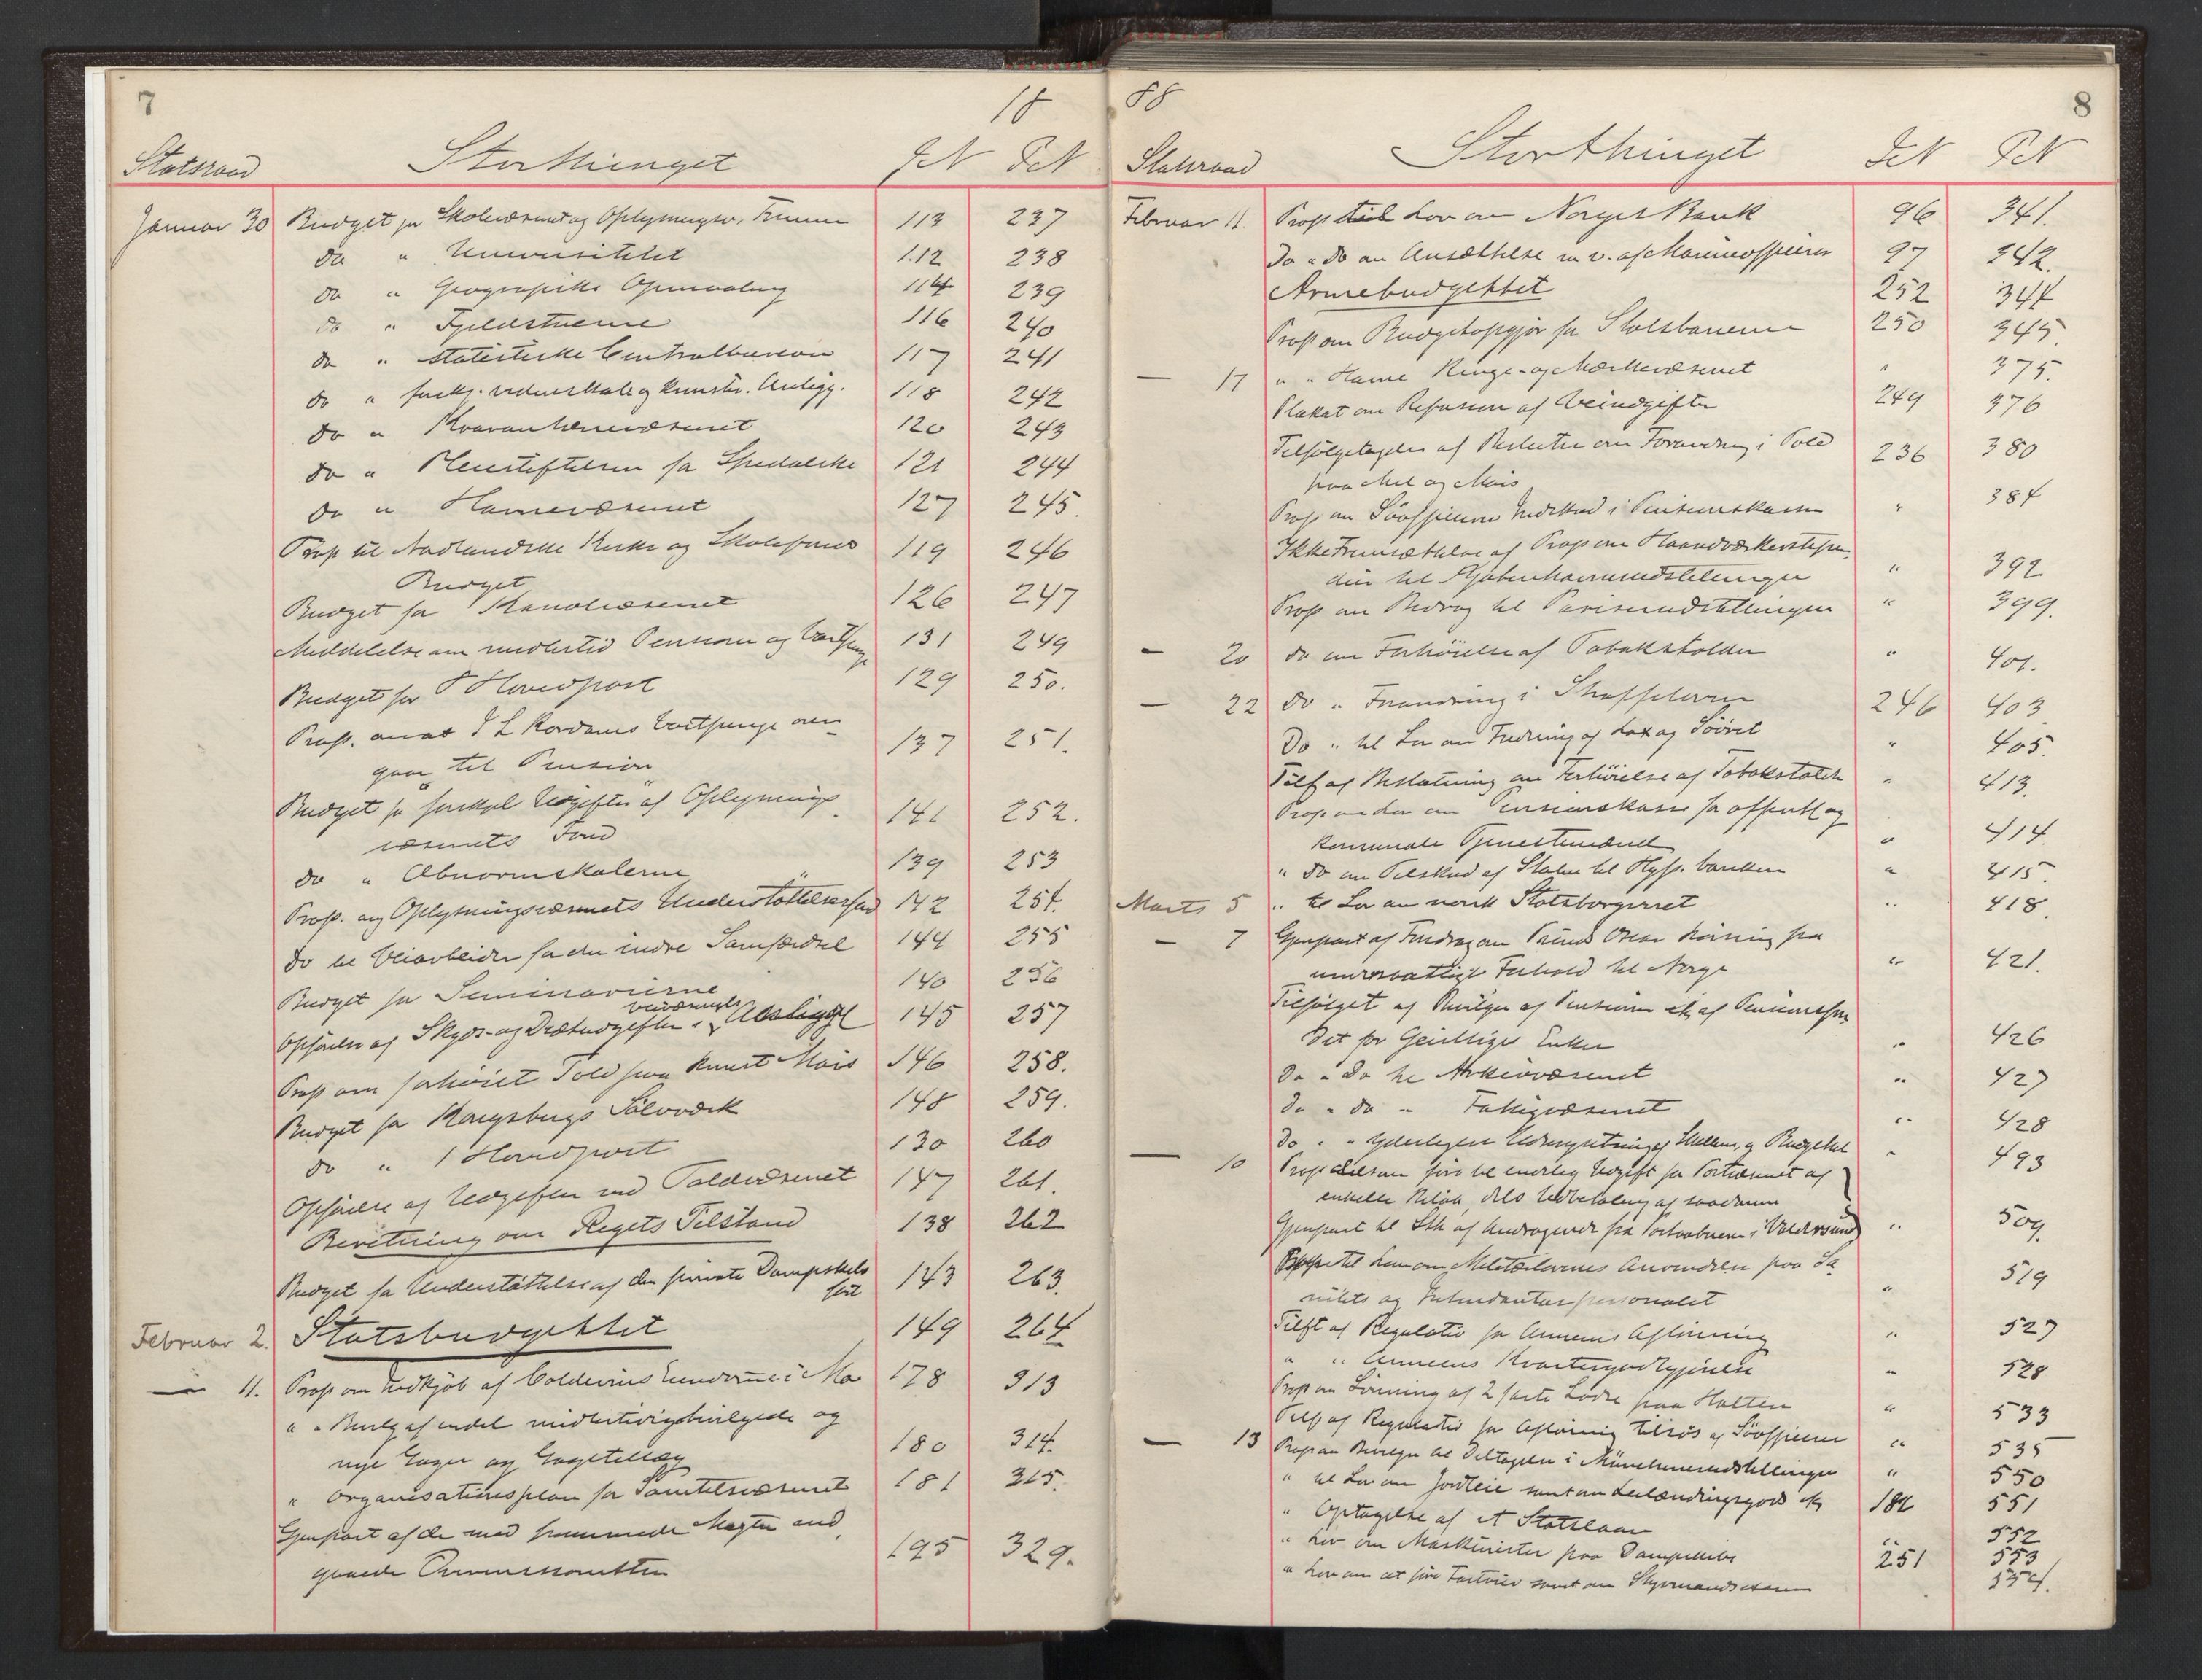 7
18
Statsraad Storthinget JN PN
Januar 30 Budget for Skolevæsenet og Oplysningsv. Fremme 113 237
do " Universitetet 112 238
do " Geografiske Opmaaling 114 239
do " Fjeldstuerne 116 240
do " statistiske Centralbureau 117 241
do " forskj. videnskabl. og kunstn. Anligg. 118 242
do " Kvarantænevæsenet 120 243
do " Pleiestiftelsen for Spedalske 121 244
do " Havnevæsenet 127 245.
Prop til Nordlandske Kirke og Skolefond 119 246
Budget
Budget for Kanalvæsenet 126 247
Meddelelse om midlertid Pension og Vartpenge 131 249
Budget for Hovedpost 129 250.
Prop. om at Vartpenge over- 137 251.
gaar til Pension
Budget for forskjel Udgifter af Oplysnings 141 252.
væsenets Fond
do " Abnormskolerne 139 253
Prop. ang Oplysningsvæsenets Understøttelsesfond 142 254.
do til Veiarbeider for den indre Samfærdsel 144 255
Budget for Seminarierne 140 256
veivæsenets
Opførelse af Skyds- og Diætudgifter i 145 257
Prop om forhøiet Told paa knust Mais 146 258.
Budget for Kongsbergs Sølvværk 148 259.
do " 1 Hovedpost 130 260
Opførelse af Udgifter ved Toldvæsenet 147 261.
Beretning om Rigets Tilstand 138 262
Budget for Understøttelse af den private Dampskibs 143 263.
fart
Februar 2. Statsbudgettet 149 264
— 11. Prop om Indkjøb af Eiendomme i Mo 178 313
" " Bevilg af endel midlertidigbevilgede og
nye Gager og Gagetillæg 180 314.
" Organisationsplan for Sanitetsvæsenet 181 315.
Gjenpart af de med fremmede Magter ind
gaaede Overenskomster 195 329.
88
8
Statsraad Storthinget JN PN
Februar 11. Prop til Lov om Norges Bank 96 341.
Do " Do om Ansættelse m v. af Marineofficerer 97 342.
Armebudgettet 252 344
Prop om Budgetopgjør for Statsbanerne 250 345.
— 17 " " Havne Ringe- og Mærkevæsenet " 375.
Plakat om Refusion af Veiudgifter 249 376
Tilfølgetagelse af Beslutn om Forandring i Told 236 380
paa Mel og Mais
Prop om Søofficerers Indskud i Pensionskassen " 384
Ikke Fremsættelse af Prop om Haandværkerstipen-
dier til Kjøbenhavnsudstillingen " 392
Prop om Bidrag til Pariserudstillingen " 399.
— 20 do om Forhøielse af Tobakstolden " 401.
— 22 do " Forandring i Straffeloven 246 403
Do " til Lov om Fredning af Lax og Søørret " 405.
Tilf af Beslutning om Forhøielse af Tobakstolden " 413.
Prop om Lov om Pensionskasse for offentl og
kommunale Tjenestemænd " 414.
" do om Tilskud af Staten til Hyp. banken " 415.
Marts 5 " til Lov om norsk Statsborgerret " 418.
— 7 Gjenpart af Foredrag om Prinds Oscar fra
Forhold til Norge " 421.
Tilfølget af Bevilgn af Pensioner etc af Pensionsfon
det for Geistliges Enker " 426
Do " Do til Arkivvæsenet " 427
do " do " Fattigvæsenet " 428
Do " " yderligere Budgettet " 493
— 10 Prop til endelig Udgift for Postvæsenet af
enkelte Beløb, dels Udbetaling af saadanne
Gjenpart til Sth af Andragende fra " 509.
Prop til Lov om Militærlovenes Anvendelse paa Sa
nitets og Intendanturpersonalet " 519
Tilft af Regulativ for Armeens Aflønning " 527
" " Armeens Kvartergodtgjørelse " 528
Prop om Lønning af 2 faste Lodse paa Halten " 533
Tilf af Regulativ for Aflønning tilsøs af Søofficerer " 535
— 13 Prop om Bevilgn til Deltagelse i Münchenerudstillingen " 550
" til Lov om Jordleie samt om Leilændingsgods etc 182 551
" Optagelse af et Statslaan " 552
" Lov om Maskinister paa Dampskibe 251 553
" Lov om at føre Fartøier samt om Styrmandsexamen 554.